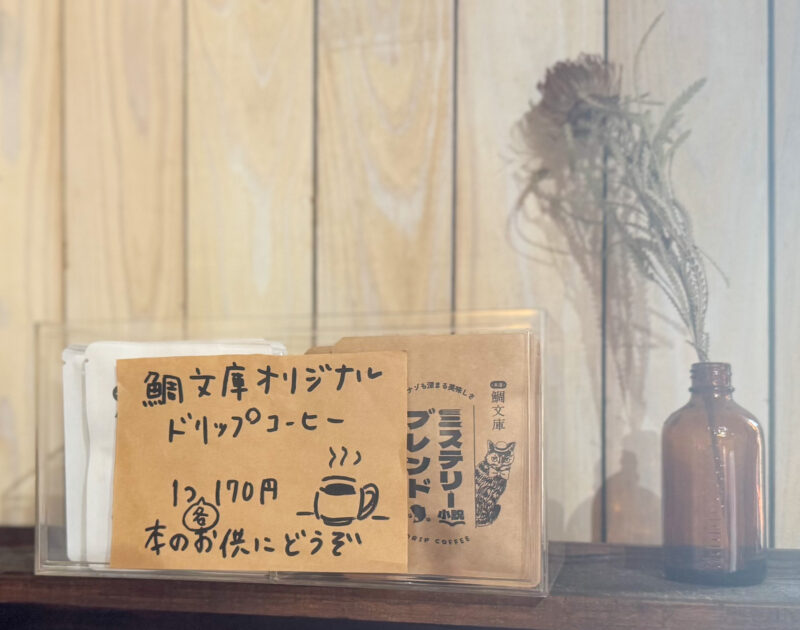 鯛文庫オリジナル
ドリップコーヒー
1つ 各 170円
本のお供にどうぞ
ナゾも深まる美味しさ
鯛文庫
ミステリー
小説
ブレンド
DRIP COFFEE